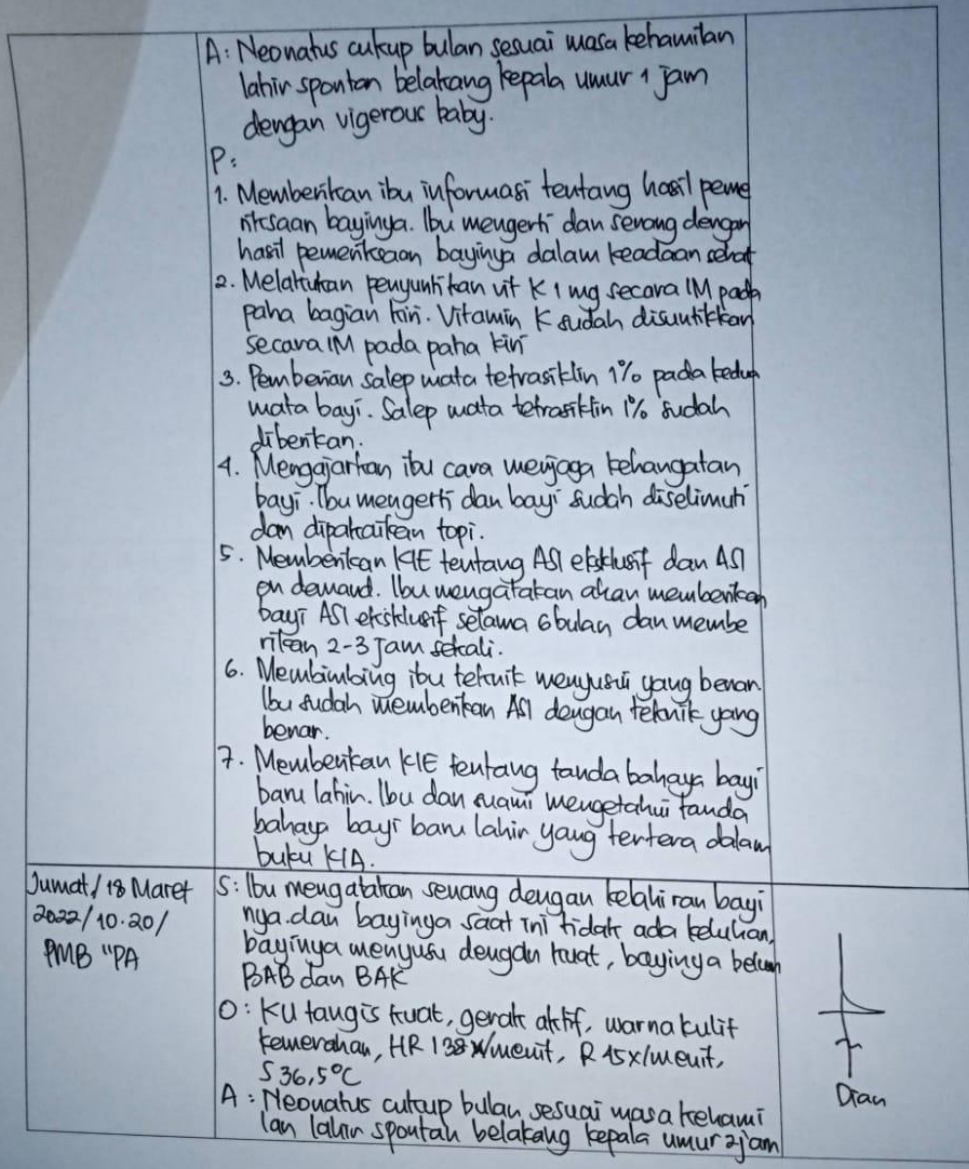 A: Neonatus cukup bulan sesuai masa kehamilan
lahir spontan belakang kepala umur 1 jam
dengan vigerous baby.
P:
1. Memberikan ibu informasi tentang hasil peme
riksaan bayinya. Ibu mengerti dan senang dengan
hasil pemeriksaan bayinya dalam keadaan sehat
2. Melakukan penyuntikan vit K 1 mg secara IM pada
paha bagian kiri. Vitamin K sudah disuntikkan
secara IM pada paha kiri
3. Pemberian salep mata tetrasiklin 1% pada kedua
mata bayi. Salep mata tetrasiklin 1% sudah
diberikan.
4. Mengajarkan ibu cara menjaga kehangatan
bayi. Ibu mengerti dan bayi sudah diselimuti
dan dipakaikan topi.
5. Memberikan KIE tentang ASI eksklusif dan ASI
on demand. Ibu mengatakan akan memberikan
bayi ASI eksklusif selama 6 bulan dan membe
rikan 2-3 jam sekali.
6. Membimbing ibu teknik menyusui yang benar.
Ibu sudah memberikan ASI dengan teknik yang
benar.
7. Memberikan KIE tentang tanda bahaya bayi
baru lahir. Ibu dan suami mengetahui tanda
bahaya bayi baru lahir yang tertera dalam
buku KIA.
Jumat/18 Maret
2022/10.20/
PMB "PA
S: Ibu mengatakan senang dengan kelahiran bayi
nya dan bayinya saat ini tidak ada keluhan,
bayinya menyusu dengan kuat, bayinya belum
BAB dan BAK
O: KU tangis kuat, gerak aktif, warna kulit
kemerahan, HR 138 x/menit, R 45x/menit,
S 36,5°C
A: Neonatus cukup bulan sesuai masa kehami
lan lahir spontan belakang kepala umur 2 jam
Dian